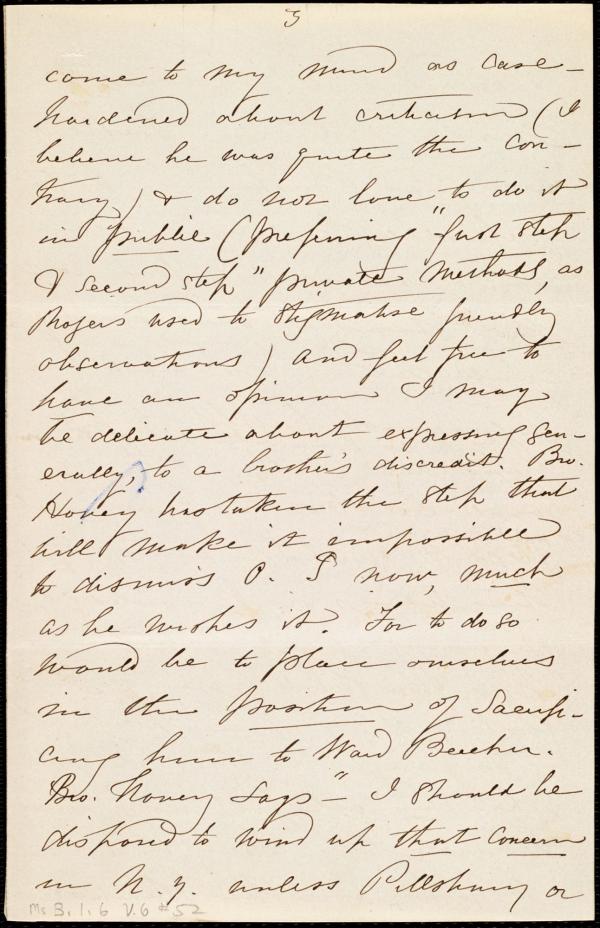 3
come to my mind as case-
hardened about criticism (I
believe he was quite the con-
trary) & do not love to do it
in public (preferring "first step
& second step" private methods, as
Rogers used to stigmatise friendly
observations) and feel free to
have an opinion I may
be delicate about expressing gen-
erally, to a brother's discredit. Bro.
Hovey has taken the step that
will make it impossible
to dismiss P. now, much
as he wishes it. For to do so
would be to place ourselves
in the position of sacrifi-
cing him to Ward Beecher.
Bro. Hovey says - "I should be
disposed to wind up that concern
in N. Y. unless Pillsbury or
Ms B. 1. 6 V. 6 #52